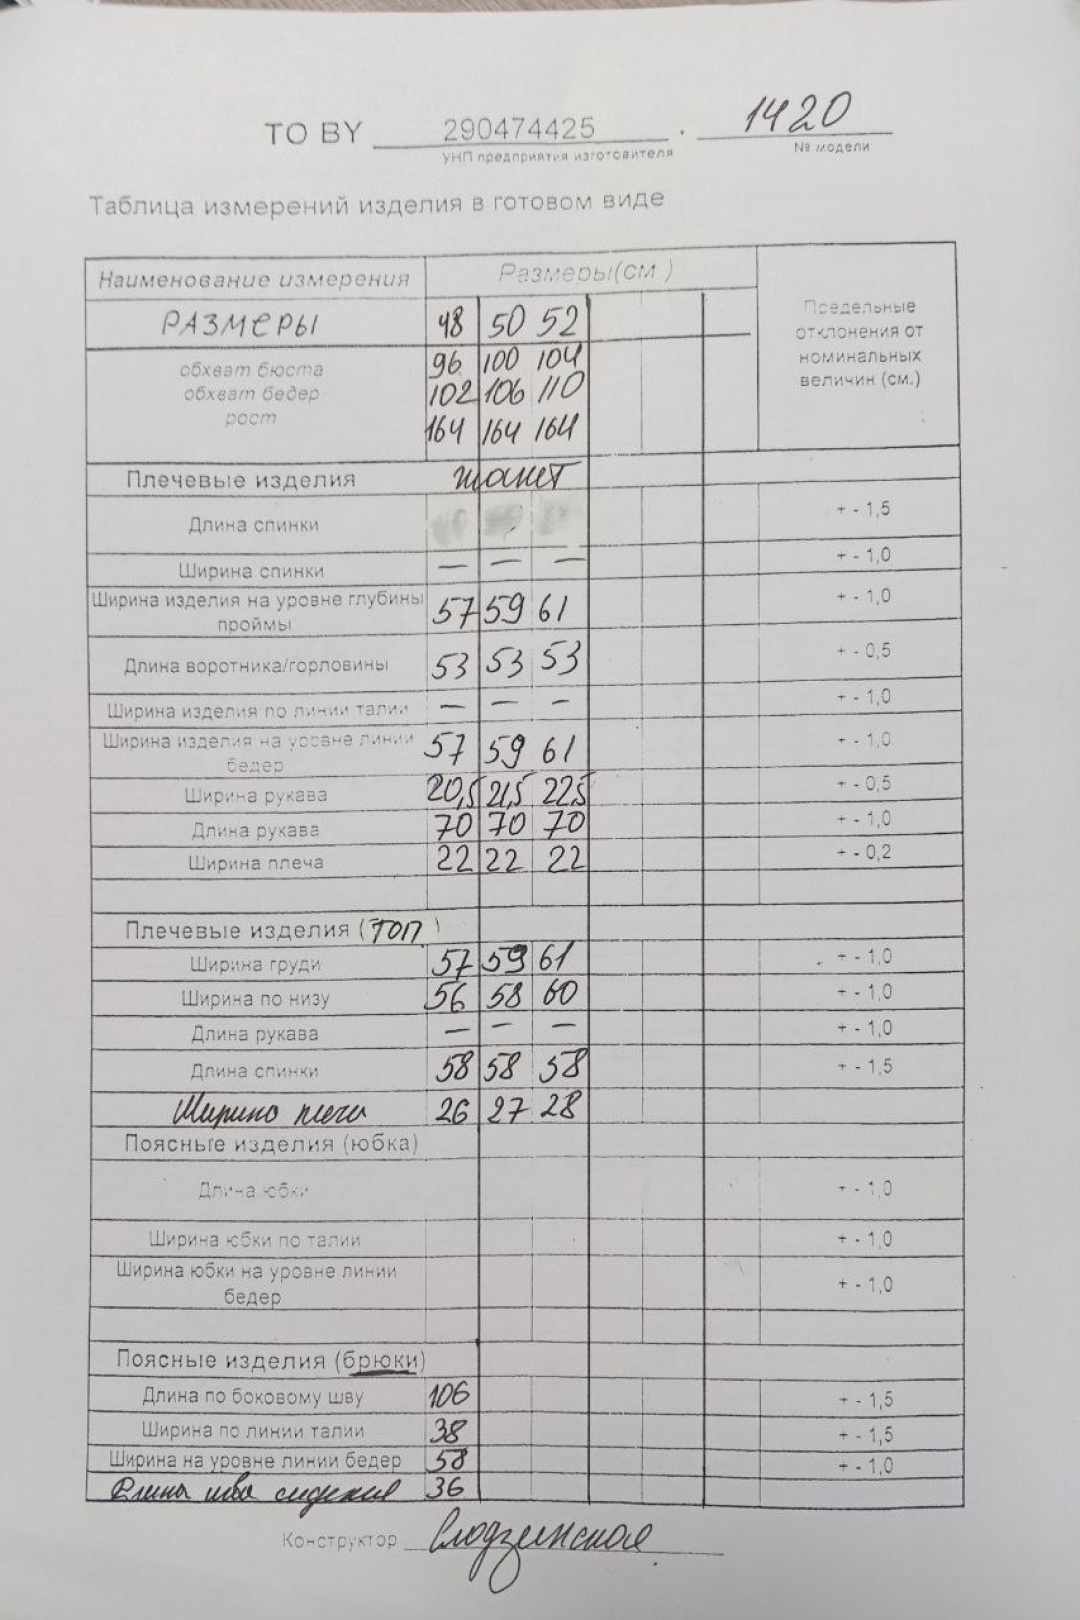 TO BY 290474425 . 1420
УНП предприятия изготовителя № модели
Таблица измерений изделия в готовом виде
Наименование измерения Размеры(см.) Предельные отклонения от номинальных величин (см.)
РАЗМЕРЫ 48 50 52
обхват бюста 96 100 104
обхват бедер 102 106 110
рост 164 164 164
Плечевые изделия жакет
Длина спинки + - 1,5
Ширина спинки — — — + - 1,0
Ширина изделия на уровне глубины проймы 57 59 61 + - 1,0
Длина воротника/горловины 53 53 53 + - 0,5
Ширина изделия по линии талии — — — + - 1,0
Ширина изделия на уровне линии бедер 57 59 61 + - 1,0
Ширина рукава 20,5 21,5 22,5 + - 0,5
Длина рукава 70 70 70 + - 1,0
Ширина плеча 22 22 22 + - 0,2
Плечевые изделия (ТОП)
Ширина груди 57 59 61 + - 1,0
Ширина по низу 56 58 60 + - 1,0
Длина рукава — — — + - 1,0
Длина спинки 58 58 58 + - 1,5
Ширина плеча 26 27 28
Поясные изделия (юбка)
Длина юбки + - 1,0
Ширина юбки по талии + - 1,0
Ширина юбки на уровне линии бедер + - 1,0
Поясные изделия (брюки)
Длина по боковому шву 106 + - 1,5
Ширина по линии талии 38 + - 1,5
Ширина на уровне линии бедер 58 + - 1,0
Длина шва сидения 36
Конструктор Слодзинская